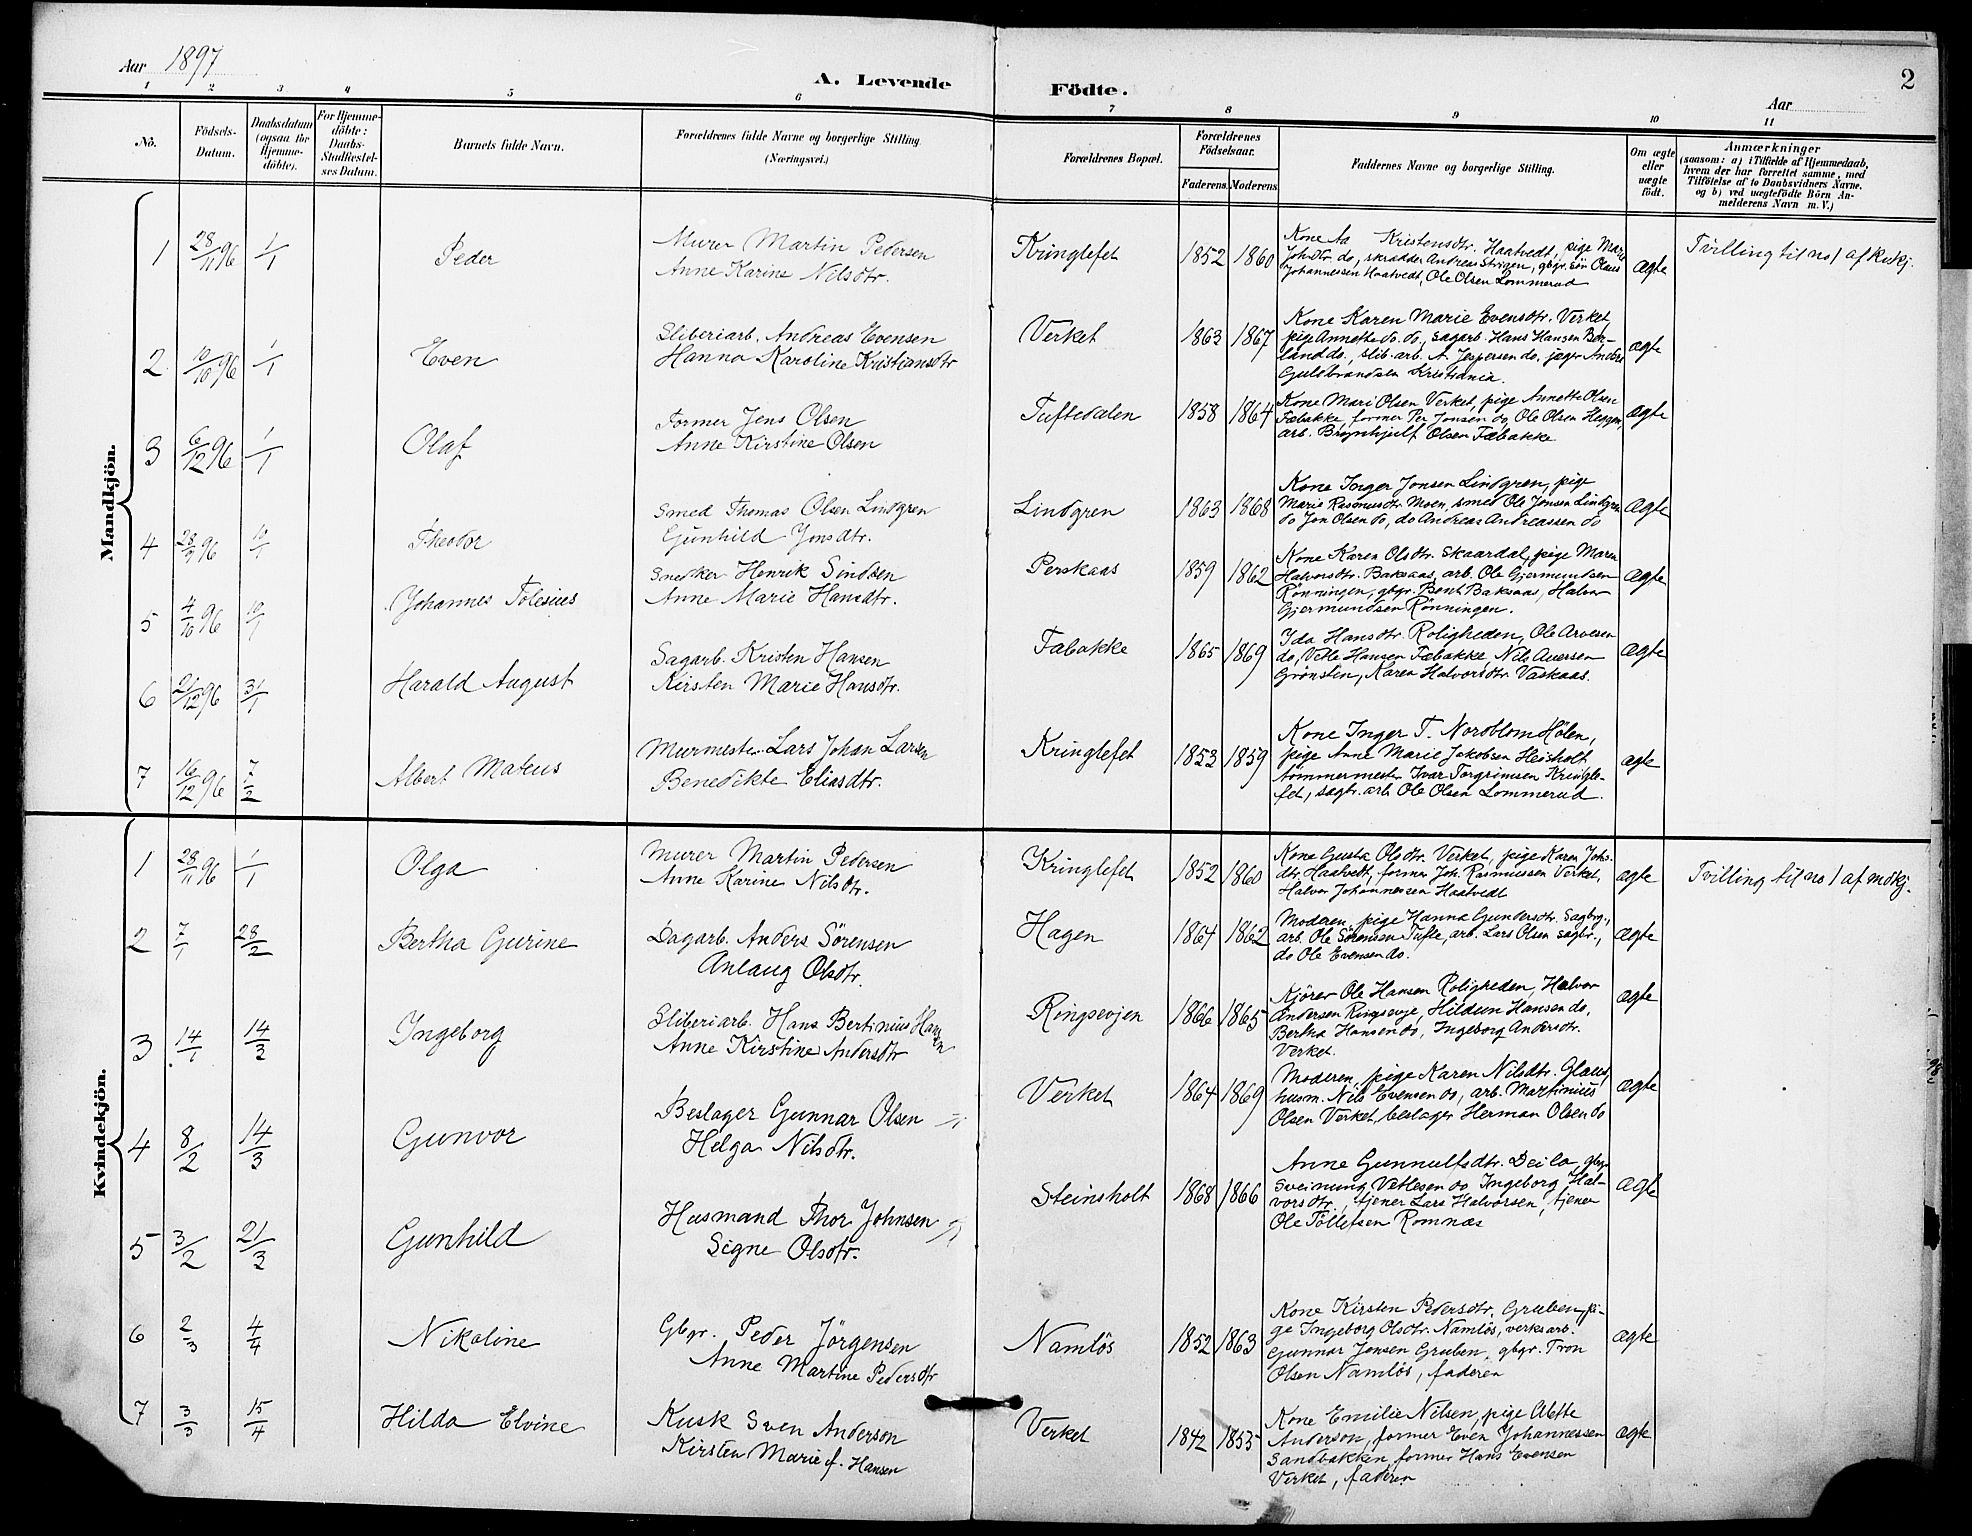 Aar 1897
A. Levende Födte.
2
Aar
1 2 3 4 5 6 7 8 9 10 11
No.
Födsels-
Datum.
Daabsdatum
(ogsaa for
Hjemme-
döbte).
For Hjemme-
döbte:
Daabs-
Stadfæstel-
ses Datum.
Barnets fulde Navn.
Forældrenes fulde Navne og borgerlige Stilling
(Næringsvei.)
Forældrenes Bopæl.
Forældrenes
Födselsaar.
Faderens. Moderens.
Faddernes Navne og borgerlige Stilling.
Om ægte
eller
uægte
födt.
Anmærkninger
(saasom: a) i Tilfælde af Hjemmedaab,
hvem der har forrettet samme, med
Tilföielse af to Daabsvidners Navne,
og b) ved uægtefödte Börn An-
melderens Navn m. V.)
Mandkjön.
1 28/11 96 1/1 Peder
Murer Martin Pedersen
Anne Karine Nilsdtr.
Kringlefet 1852 1860
Kone Aa Kristensdtr. Haatvedt, pige Maria
Johsdtr. do, skrædder Andreas Strigen, gbgr. søn Olaus
Johannessen Haatvedt, Ole Olsen Lommerud
ægte
Tvilling til no 1 af kvkj.
2 10/10 96 1/1 Even
Sliberiarb. Andreas Evensen
Hanna Karoline Kristiansdtr
Verket 1863 1867
Kone Karen Marie Evensdtr. Verket
pige Annette do. do, sagarb. Hans Hansen Bor-
land do., slib. arb. A. Jespersen do, jæger Anders
Gulsbrandsen Kristiania.
ægte
3 6/12 96 1/1 Olaf
Former Jens Olsen
Anne Kirstine Olsen
Tuftedalen 1858 1864
Kone Mari Olsen Verket, pige Annette Olsen
Fæbakke, former Per Jonsen do, Ole Olsen Heggen,
arb. Brynhjulf Olsen Fæbakke
ægte
4 28/9 96 10/1 Theodor
Smed Thomas Olsen Lindgren
Gunhild Jonsdtr.
Lindgren 1863 1868
Kone Inger Jonsen Lindgren, pige
Marie Rasmusdtr Moen, smed Ole Jonsen Lindgren
do Jon Olsen do, do Andreas Andreassen do
ægte
5 4/10 96 10/1 Johannes Tolesius
Snedker Henrik Sindsen
Anne Marie Hansdtr.
Perskaas 1859 1862
Kone Karen Olsdtr. Skaardal, pige Maren
Halvorsdtr. Baksaas, arb. Ole Gjermundsen
Rønningen, gbgr. Bent Baksaas, Halvor
Gjermundsen Rønningen.
ægte
6 21/12 96 31/1 Harald August
Sagarb. Kristen Hansen
Kirsten Marie Hansdtr.
Fæbakke 1865 1869
Ida Hansdtr. Roligheden, Ole Arvesen
do, Vetle Hansen Fæbakke, Nils Aversen
Grønsten, Karen Halvorsdtr. Vaskaas.
ægte
7 16/12 96 7/2 Albert Mateus
Murmester Lars Johan Larsen
Benedikte Eliasdtr.
Kringlefet 1853 1859
Kone Inger T. Nordblom Hølen,
pige Anne Marie Jakobsen Heisholt
tømmermester Ivar Torgrimsen Kringle-
fet, sagbr. arb. Ole Olsen Lommerud.
ægte
Kvindekjön.
1 28/11 96 1/1 Olga
Murer Martin Pedersen
Anne Karine Nilsdtr.
Kringlefet 1852 1860
Kone Gusta Olsdtr. Verket, pige Karen Johs.
dtr. Haatvedt, former Joh. Rasmussen Verket,
Halvor Johannessen Haatvedt
ægte
Tvilling til no 1 af mdkj.
2 7/1 28/2 Bertha Gurine
Dagarb. Anders Sörensen
Anlaug Olsdtr.
Hagen 1864 1862
Moderen, pige Hanna Gundersdtr. Sagbrg.,
arb. Ole Sörensen Tufte, arb. Lars Olsen sagbr.,
do Ole Evensen do.
ægte
3 14/1 14/3 Ingeborg
Sliberiarb. Hans Bertinius Hansen
Anne Kirstine Andersdtr
Ringsevjen 1866 1865
Kjörer Ole Hansen Roligheden, Halvor
Andersen Ringsevje, Hildun Hansen do,
Bertha Hansen do, Ingeborg Andersdtr.
Verket.
ægte
4 8/2 14/3 Gunvor
Beslager Gunnar Olsen
Helga Nilsdtr.
Verket 1864 1869
Moderen, pige Karen Nilsdtr. Glaus,
husm. Nils Evensen do, arb. Martinius
Olsen Verket, beslager Herman Olsen do
ægte
5 3/2 21/3 Gunhild
Husmand Thor Johnsen
Signe Olsdtr.
Steinsholt 1868 1866
Anne Gunnulfsdtr. Deila, gbgr
Sveinung Vetlesen do, Ingeborg Hal-
vorsdtr., tjener Lars Halvorsen, tjener
Ole Tollefsen Romnæs
ægte
6 2/3 4/4 Nikoline
Gbgr. Peder Jörgensen
Anne Martine Pedersdtr
Namlös 1852 1863
Kone Kirsten Pedersdtr. Gruben, pi-
ge Ingeborg Olsdtr. Namlös, verksarb.
Gunnar Jensen Gruben, gbgr. Tron
Olsen Namlös, faderen
ægte
7 3/3 15/4 Hilda Elvine
Kusk Sven Anderson
Kirsten Marie f. Hansen
Verket 1842 1855
Kone Emilie Nilsen, pige Alette
Anderson, former Even Johannessen
Sandbakken, former Hans Evensen
Verket, faderen
ægte